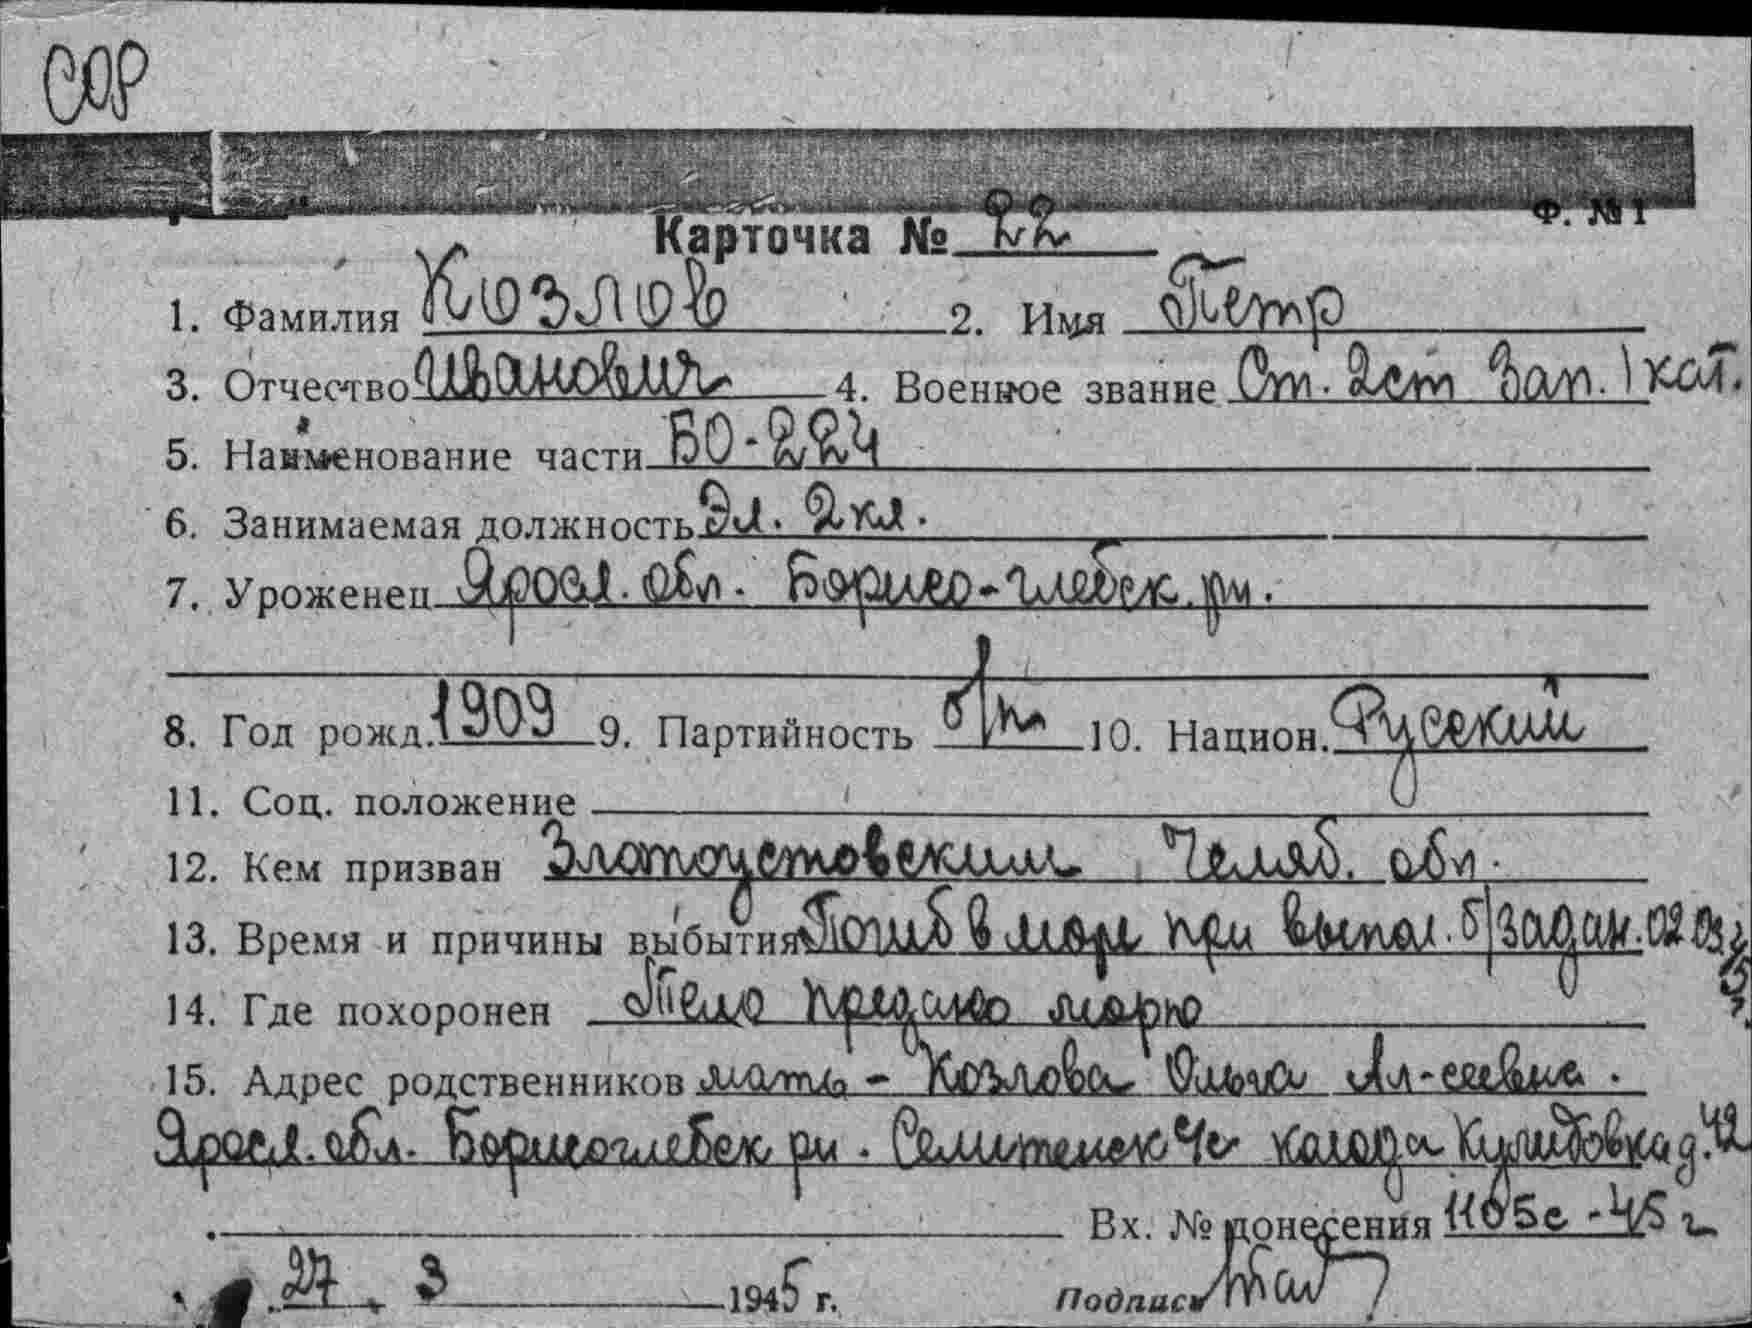 СОР
Ф. №1
Карточка № 22
1. Фамилия Козлов 2. Имя Петр
3. Отчество Иванович 4. Военное звание Ст. 2 ст зап. 1 кат.
5. Наименование части БО-224
6. Занимаемая должность Эл. 2 кл.
7. Уроженец Яросл. обл. Борисо-глебск. рн.
8. Год рожд. 1909 9. Партийность б/п 10. Национ. Русский
11. Соц. положение
12. Кем призван Златоустовским Челяб. обл.
13. Время и причины выбытия Погиб в море при выпол. б/задан. 02.03
14. Где похоронен Тело предано морю
15. Адрес родственников мать - Козлова Ольга Ал-сеевна.
Яросл. обл. Борисоглебск рн. д. 42
Вх. № донесения 1105с - 45 г
27. 3 1945 г. Подпись